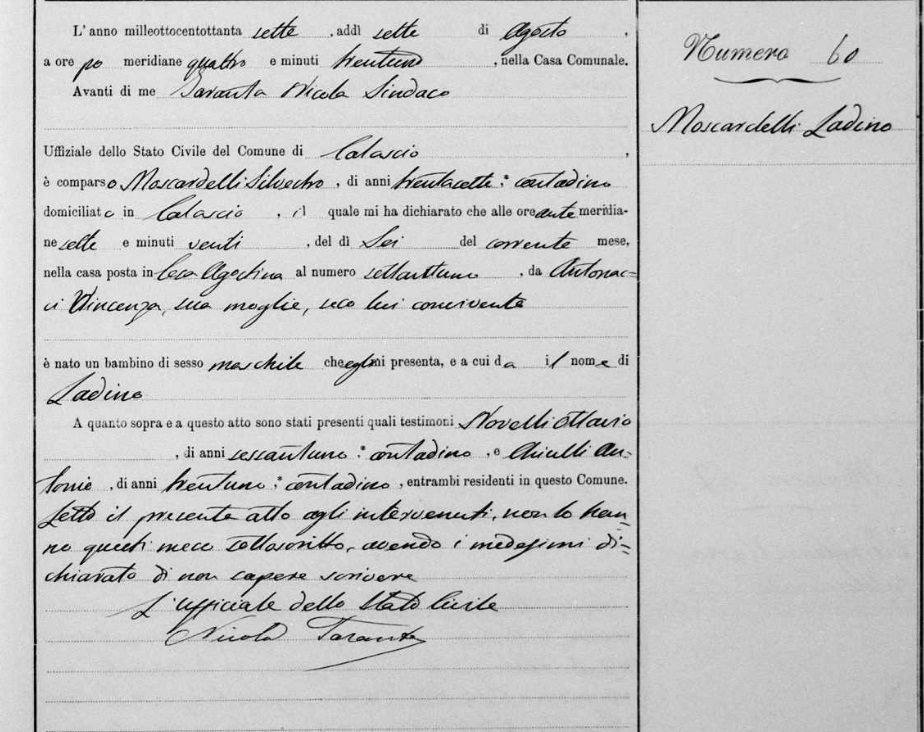 L' anno milleottocentottanta sette , addì sette di Agosto ,
a ore po meridiane quattro e minuti trentuno , nella Casa Comunale.
Avanti di me Taranta Nicola Sindaco
Uffiziale dello Stato Civile del Comune di Calascio ,
è comparso Moscardelli Silvestro , di anni trentasette : contadino
domiciliato in Calascio , il quale mi ha dichiarato che alle ore ante meridia-
ne sette e minuti venti , del dì Sei del corrente mese,
nella casa posta in Agostina al numero settantuno , da Antonac=
ci Vincenza, sua moglie, seco lui convivente
è nato un bambino di sesso maschile che egli mi presenta, e a cui da il nome di
Ladino
A quanto sopra e a questo atto sono stati presenti quali testimoni Novelli Ottavio
, di anni sessantuno : contadino , e Chiulli An=
tonio , di anni trentuno : contadino , entrambi residenti in questo Comune.
Letto il presente atto agli intervenuti, non lo han=
no questi meco sottoscritto, avendo i medesimi di=
chiarato di non sapere scrivere
L'Uffiziale dello Stato Civile
Nicola Taranta
Numero 60
Moscardelli Ladino